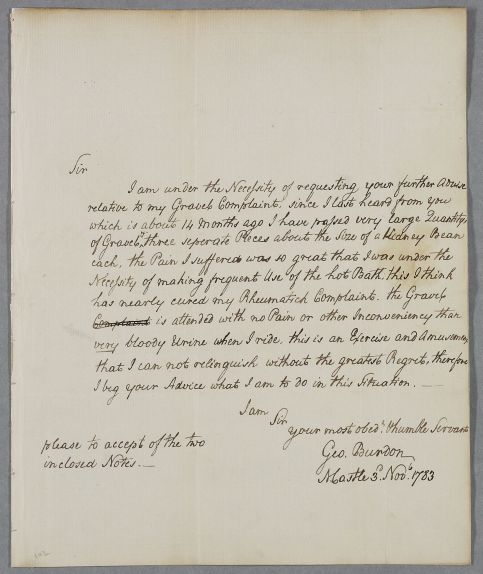 Sir
I am under the Necessity of requesting your further Advise
relative to my Gravel Complaint, since I last heard from you
which is about 14 Months ago I have passed very large Quantitys
of Gravel, three seperate Pieces about the Size of a Kidney Bean
each, the Pain I suffered was so great that I was under the
Necessity of making frequent Use of the hot Bath, this I think
has nearly cured my Rheumatick Complaint. the Gravel
Complaint is attended with no Pain or other Inconveniency than
very bloody Urine when I ride, this is an Exercise and Amusement
that I can not relinquish without the greatest Regret, therefore
I beg your Advice what I am to do in this Situation. —
I am
Sir
your most obed.t Humble Servant
Geo. Burdon
3.d Nov.r 1783
please to accept of the two
inclosed Notes. —